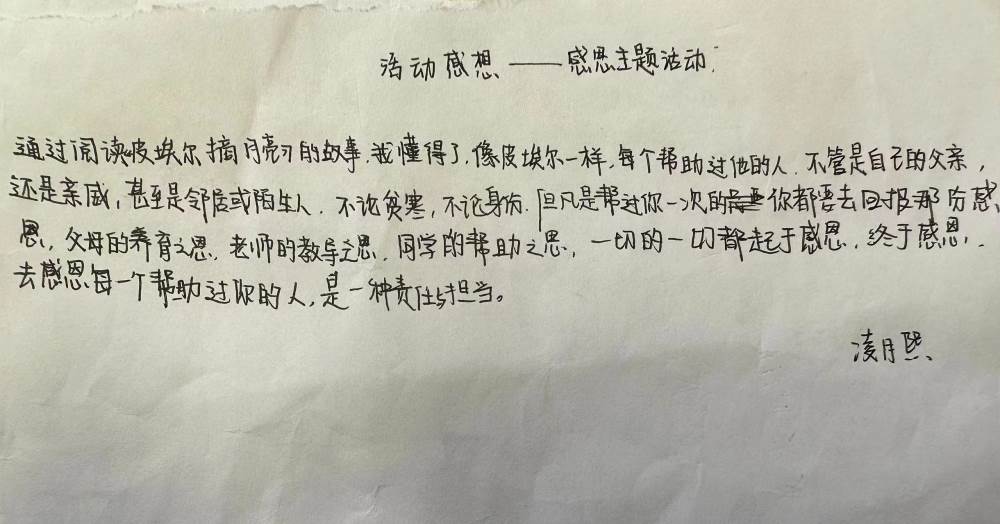 活动感想——感恩主题活动
通过阅读皮埃尔摘月亮的故事,我懂得了,像皮埃尔一样,每个帮助过他的人.不管是自己的父亲,
还是亲戚,甚至是邻居或陌生人.不论贫寒,不论身份.但凡是帮过你一次的你都要去回报那份感
恩,父母的养育之恩.老师的教导之恩.同学的帮助之恩,一切的一切都起于感恩.终于感恩,
去感恩每一个帮助过你的人,是一种责任与担当。
凌月熙